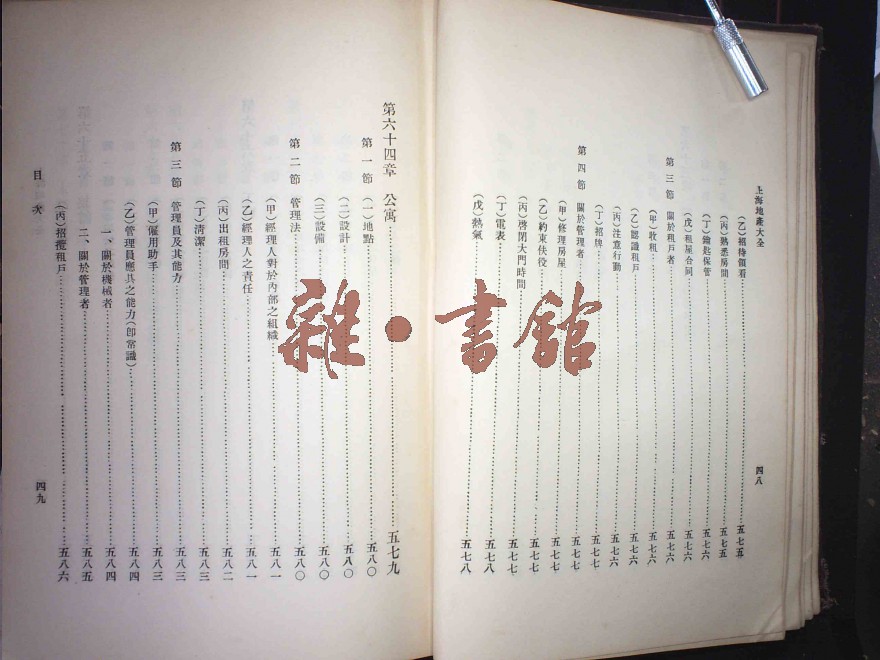 上海地產大全
(乙)招待領看……五七五
(丙)熟悉房間……五七五
(丁)鑰匙保管……五七六
(戊)租屋合同……五七六
第三節 關於租戶者……五七六
(甲)收租……五七六
(乙)認識租戶……五七六
(丙)注意行動……五七六
(丁)招牌……五七七
第四節 關於管理者……五七七
(甲)修理房屋……五七七
(乙)約束伕役……五七七
(丙)啓閉大門時間……五七七
(丁)電表……五七八
(戊)熱氣……五七八
四八
第六十四章 公寓……五七九
第一節 (一)地點……五八〇
(二)設計……五八〇
(三)設備……五八〇
第二節 管理法……五八〇
(甲)經理人對於內部之組織……五八一
(乙)經理人之責任……五八一
(丙)出租房間……五八二
(丁)清潔……五八三
第三節 管理員及其能力……五八三
(甲)僱用助手……五八三
(乙)管理員應具之能力(卽常識)……五八四
一、關於機械者……五八四
二、關於管理者……五八五
(丙)招攬租戶……五八六
目次
四九
雜·書館